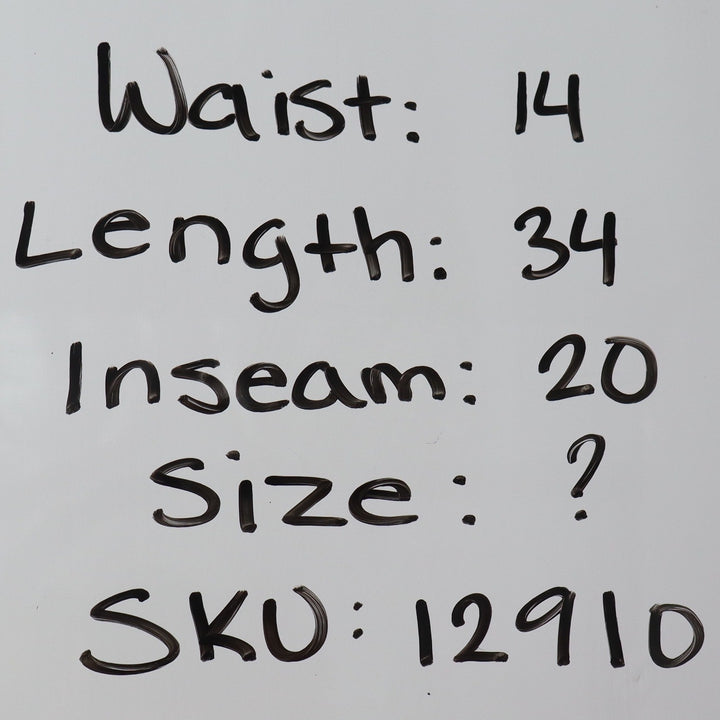 Waist: 14
Length: 34
Inseam: 20
Size: ?
SKU: 12910